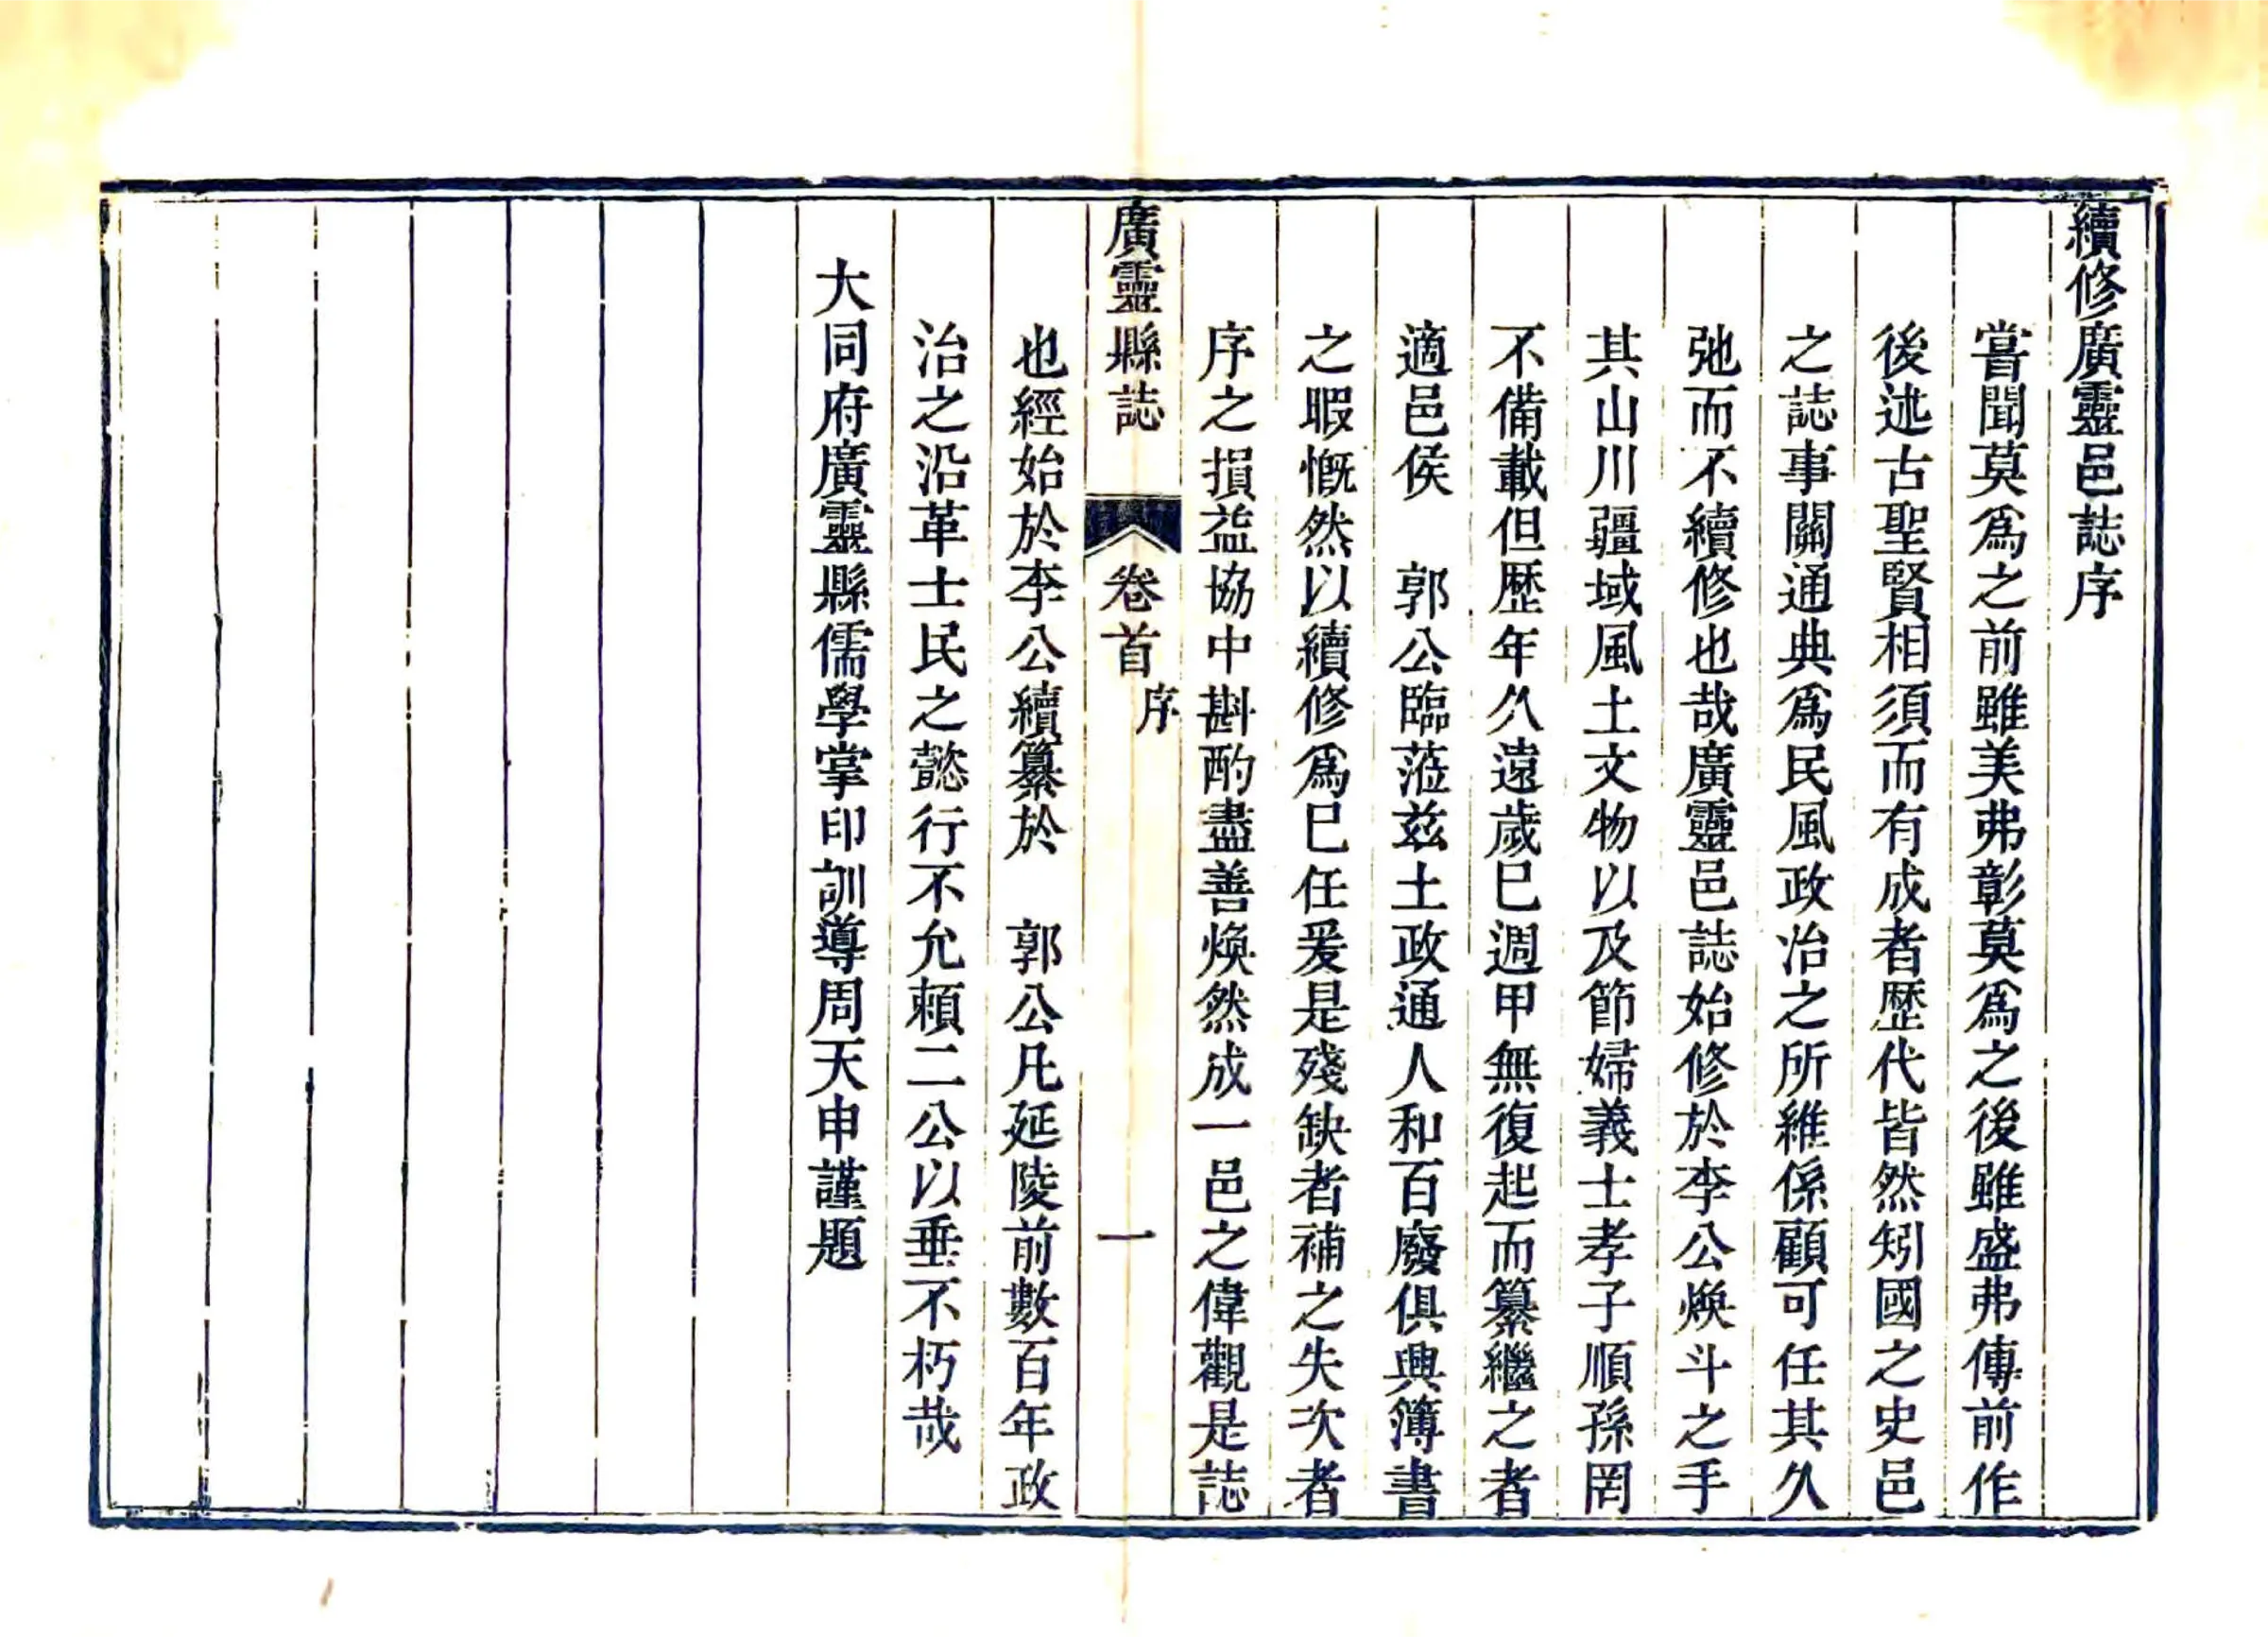 續修廣靈邑誌序
嘗聞莫爲之前雖美弗彰莫爲之後雖盛弗傳前作
後述古聖賢相須而有成者歷代皆然矧國之史邑
之誌事關通典爲民風政治之所維係顧可任其久
弛而不續修也哉廣靈邑誌始修於李公煥斗之手
其山川疆域風土文物以及節婦義士孝子順孫罔
不備載但歷年久遠歲巳週甲無復起而纂繼之者
適邑侯　郭公臨蒞兹土政通人和百廢俱興簿書
之暇慨然以續修爲巳任爰是殘缺者補之失次者
序之損益協中斟酌盡善煥然成一邑之偉觀是誌
廣靈縣誌　卷首　序　一
也經始於李公續纂於　郭公凡延陵前數百年政
治之沿革士民之懿行不允賴二公以垂不朽哉
大同府廣靈縣儒學掌印訓導周天申謹題